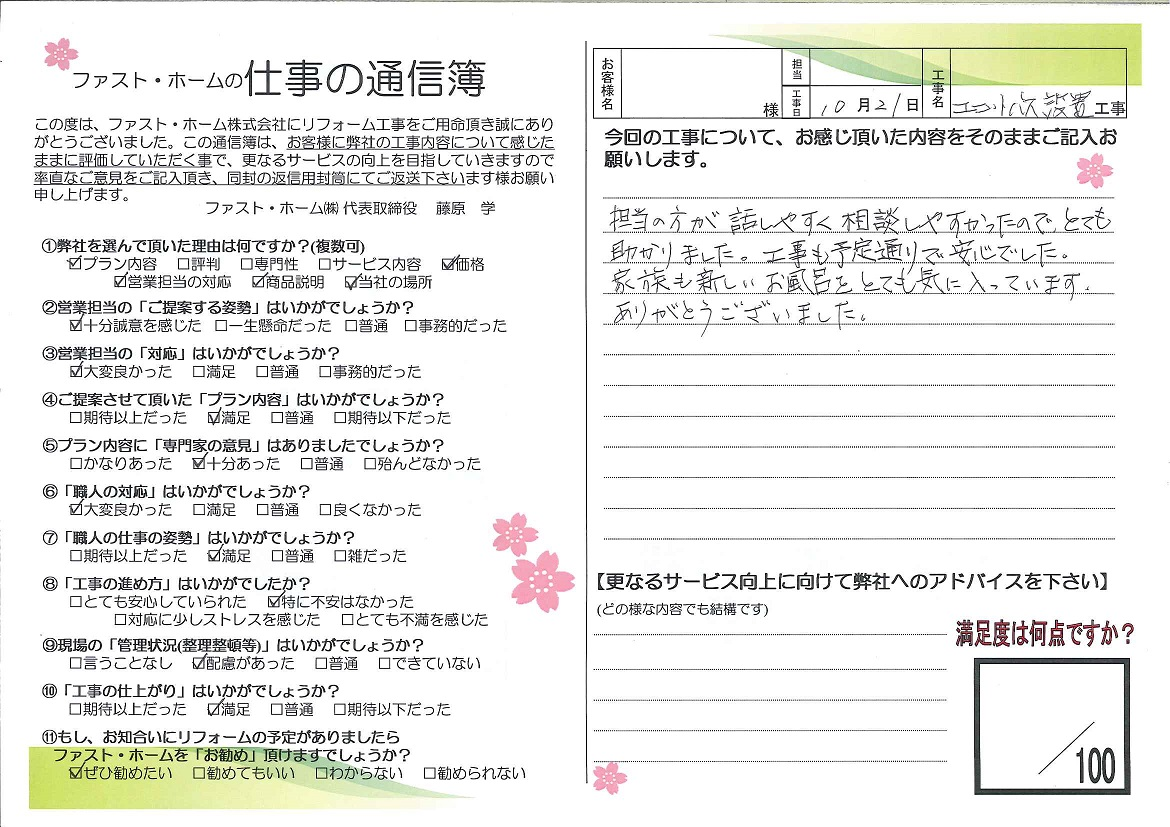 ファスト・ホームの仕事の通信簿
この度は、ファスト・ホーム株式会社にリフォーム工事をご用命頂き誠にあり
がとうございました。この通信簿は、お客様に弊社の工事内容について感じた
ままに評価していただく事で、更なるサービスの向上を目指していきますので
率直なご意見をご記入頂き、同封の返信用封筒にてご返送下さいます様お願い
申し上げます。
ファスト・ホーム㈱ 代表取締役 藤原 学
①弊社を選んで頂いた理由は何ですか?(複数可)
☑プラン内容 □評判 □専門性 □サービス内容 ☑価格
☑営業担当の対応 ☑商品説明 ☑当社の場所
②営業担当の「ご提案する姿勢」はいかがでしょうか?
☑十分誠意を感じた □一生懸命だった □普通 □事務的だった
③営業担当の「対応」はいかがでしょうか?
☑大変良かった □満足 □普通 □事務的だった
④ご提案させて頂いた「プラン内容」はいかがでしょうか?
□期待以上だった ☑満足 □普通 □期待以下だった
⑤プラン内容に「専門家の意見」はありましたでしょうか?
□かなりあった ☑十分あった □普通 □殆んどなかった
⑥「職人の対応」はいかがでしょうか?
☑大変良かった □満足 □普通 □良くなかった
⑦「職人の仕事の姿勢」はいかがでしょうか?
□期待以上だった ☑満足 □普通 □雑だった
⑧「工事の進め方」はいかがでしたか?
□とても安心していられた ☑特に不安はなかった
□対応に少しストレスを感じた □とても不満を感じた
⑨現場の「管理状況(整理整頓等)」はいかがでしょうか?
□言うことなし ☑配慮があった □普通 □できていない
⑩「工事の仕上がり」はいかがでしょうか?
□期待以上だった ☑満足 □普通 □期待以下だった
⑪もし、お知合いにリフォームの予定がありましたら
ファスト・ホームを「お勧め」頂けますでしょうか?
☑ぜひ勧めたい □勧めてもいい □わからない □勧められない
お客様名 様 担当 工事日 10月21日 工事名 ユニットバス設置工事
今回の工事について、お感じ頂いた内容をそのままご記入お
願いします。
担当の方が話しやすく相談しやすかったので、とても
助かりました。工事も予定通りで安心でした。
家族も新しいお風呂をとても気に入っています。
ありがとうございました。
【更なるサービス向上に向けて弊社へのアドバイスを下さい】
(どの様な内容でも結構です)
満足度は何点ですか?
/100